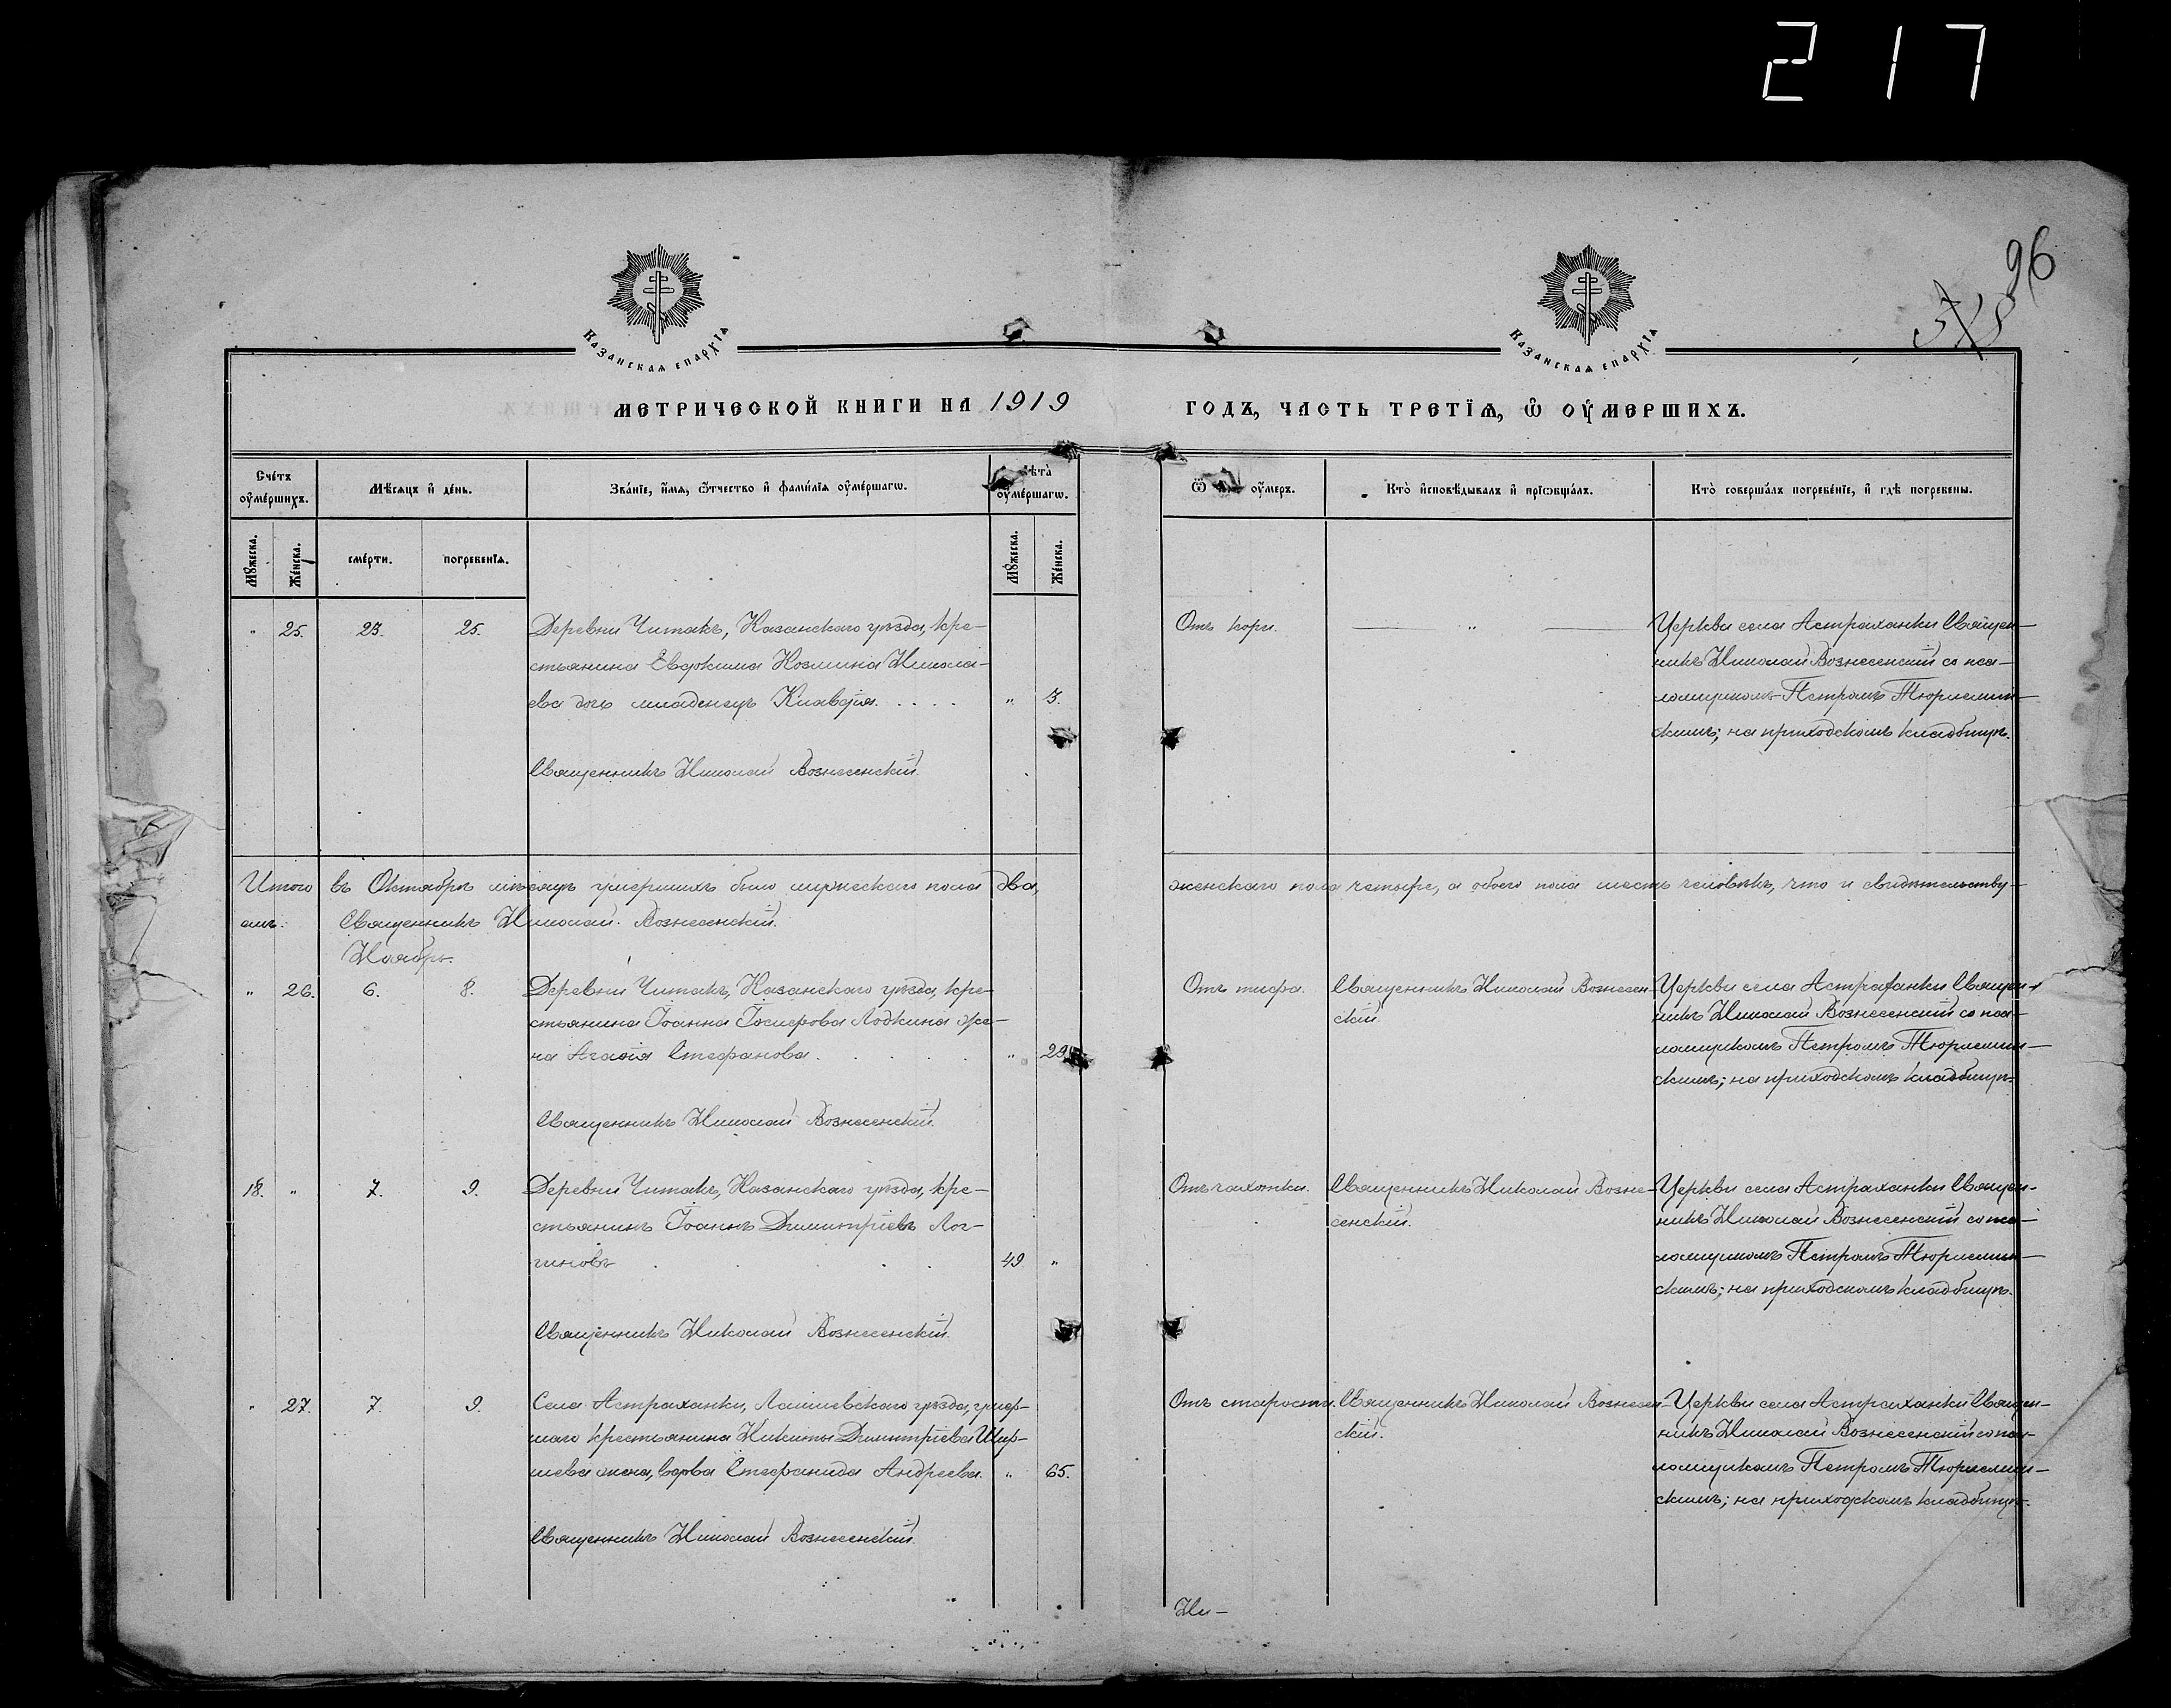 217
96
318
Казанская епархїя
Казанская епархїя
МЕТРИЧЕСКОЙ КНИГИ НА 1919 ГОДЪ, ЧАСТЬ ТРЕТЇѦ, Ѽ ОУМЕРШИХЪ.
Счетъ оумершихъ.
Мѣсяцъ и день.
Званїе, имя, ѿчество и фамилїя оумершагѡ.
Лѣта оумершагѡ.
оумеръ.
Кто исповѣдывалъ и прїѡбщалъ.
Кто совершалъ погребенїе, и гдѣ погребены.
Мужеска.
Женска.
смерти.
погребенїя.
Мужеска.
Женска.
" 25. 23. 25. Деревни Читакъ, Казанскаго уѣзда, кре-
стьянина Евдокима Козмина Никола-
ева дочь младенецъ Клавдія. . . . . " 3.
Священникъ Николай Вознесенскій
Отъ кори.
"
Церкви села Астраханки Священ-
никъ Николай Вознесенскій со пса-
ломщикомъ Петромъ Тюрлемин-
скимъ; на приходскомъ кладбищѣ.
Итого въ Октябрѣ мѣсяцѣ умершихъ было мужескаго пола два, женскаго пола четыре, а обоего пола шесть человѣкъ, что и свидѣтельству-
емъ: Священникъ Николай Вознесенскій.
Ноябрь.
" 26. 6. 8. Деревни Читакъ, Казанскаго уѣзда, кре-
стьянина Іоанна Іосифова Лодкина же-
на Агафія Стефанова. . . . . " 29
Священникъ Николай Вознесенскій
Отъ тифа.
Священникъ Николай Вознесен-
скій.
Церкви села Астраханки Священ-
никъ Николай Вознесенскій со пса-
ломщикомъ Петромъ Тюрлемин-
скимъ; на приходскомъ кладбищѣ.
18. " 7. 9. Деревни Читакъ, Казанскаго уѣзда, кре-
стьянинъ Іоаннъ Димитріевъ Лог-
гиновъ . . . 49 "
Священникъ Николай Вознесенскій.
Отъ чахотки.
Священникъ Николай Возне-
сенскій.
Церкви села Астраханки Священ-
никъ Николай Вознесенскій со пса-
ломщикомъ Петромъ Тюрлемин-
скимъ; на приходскомъ кладбищѣ.
" 27. 7. 9. Села Астраханки, Лаишевскаго уѣзда, умер-
шаго крестьянина Никиты Димитріева
жена, вдова Стефанида Андреева. " 65.
Священникъ Николай Вознесенскій.
Отъ старости.
Священникъ Николай Вознесен-
скій.
Церкви села Астраханки Священ-
никъ Николай Вознесенскій со пса-
ломщикомъ Петромъ Тюрлемин-
скимъ; на приходскомъ кладбищѣ.
Ни-